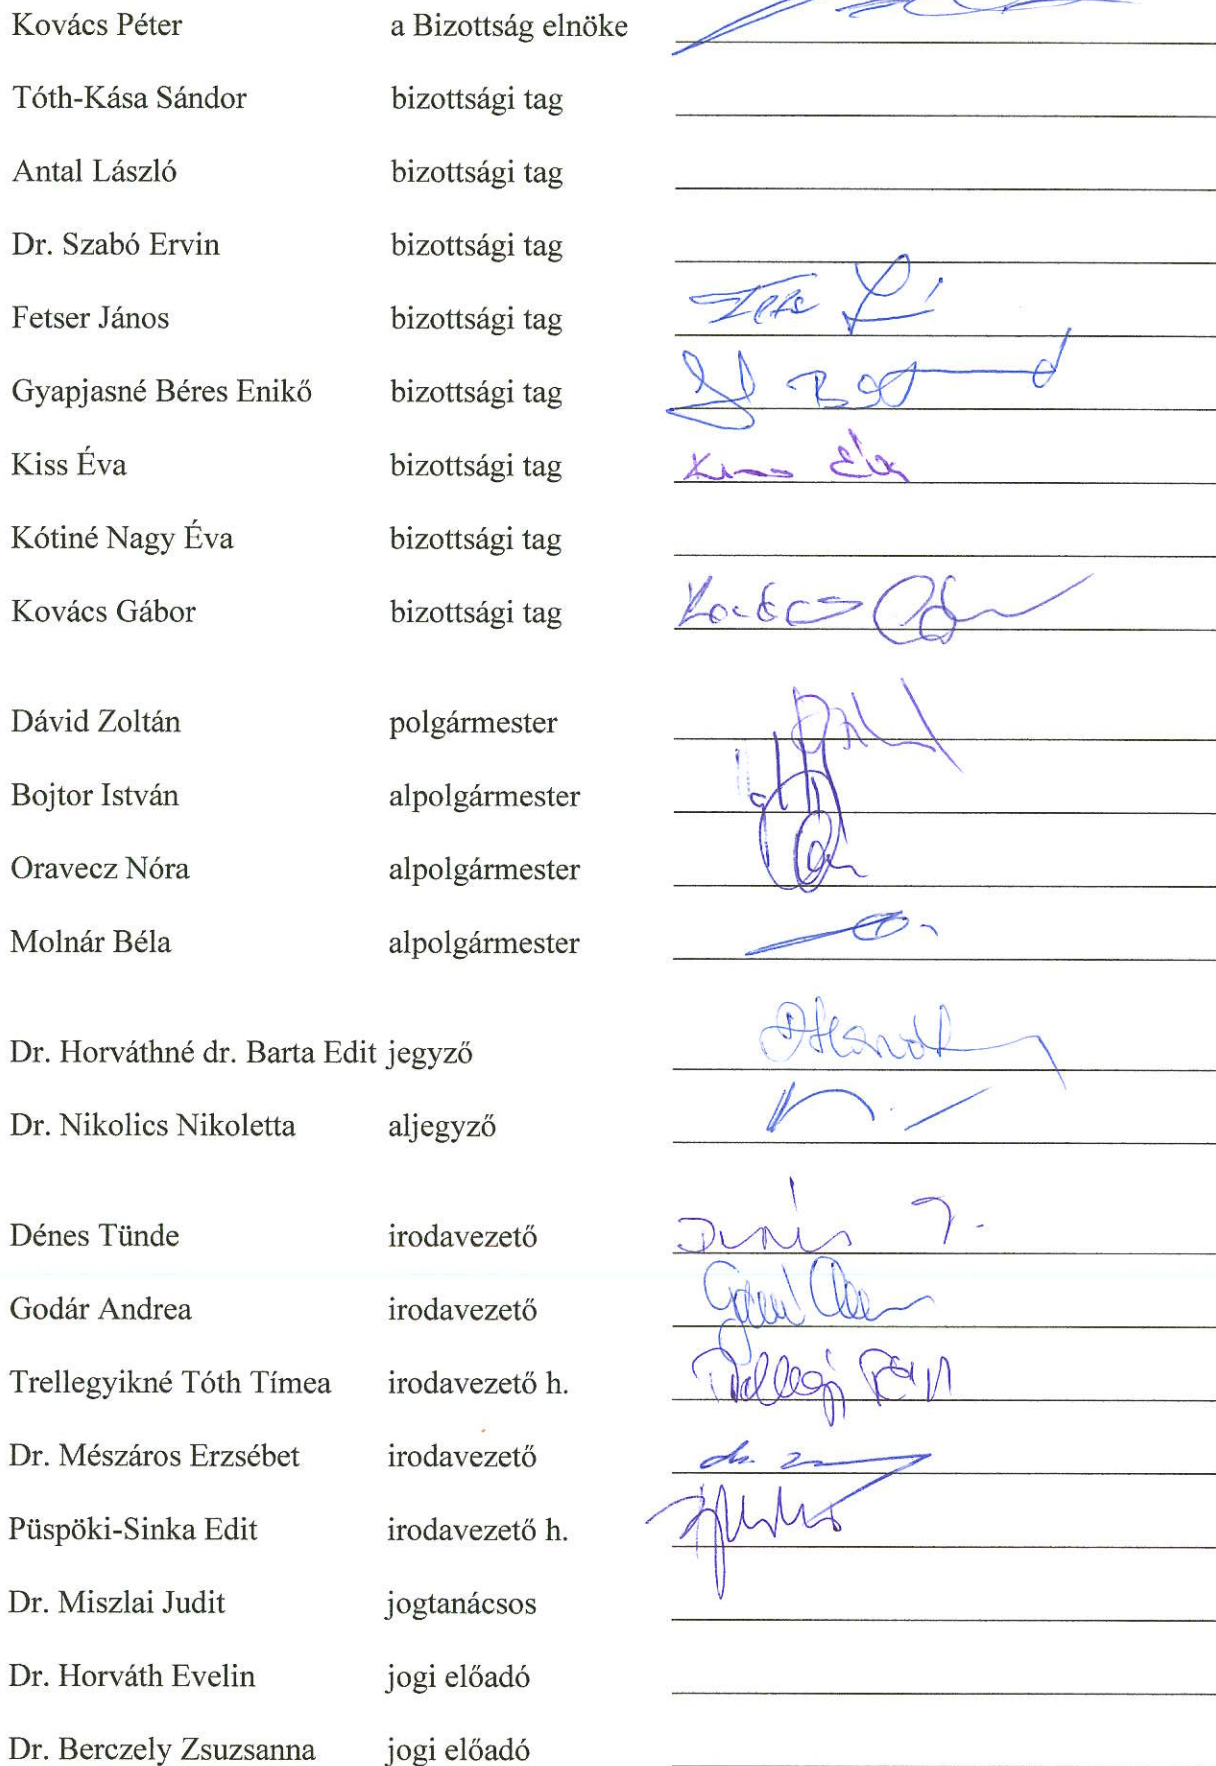 Kovács Péter a Bizottság elnöke
Tóth-Kása Sándor bizottsági tag
Antal László bizottsági tag
Dr. Szabó Ervin bizottsági tag
Fetser János bizottsági tag
Gyapjasné Béres Enikő bizottsági tag
Kiss Éva bizottsági tag Kiss Éva
Kótiné Nagy Éva bizottsági tag
Kovács Gábor bizottsági tag Kovács
Dávid Zoltán polgármester
Bojtor István alpolgármester
Oravecz Nóra alpolgármester
Molnár Béla alpolgármester
Dr. Horváthné dr. Barta Edit jegyző
Dr. Nikolics Nikoletta aljegyző
Dénes Tünde irodavezető Dénes T.
Godár Andrea irodavezető
Trellegyikné Tóth Tímea irodavezető h.
Dr. Mészáros Erzsébet irodavezető dr.
Püspöki-Sinka Edit irodavezető h.
Dr. Miszlai Judit jogtanácsos
Dr. Horváth Evelin jogi előadó
Dr. Berczely Zsuzsanna jogi előadó